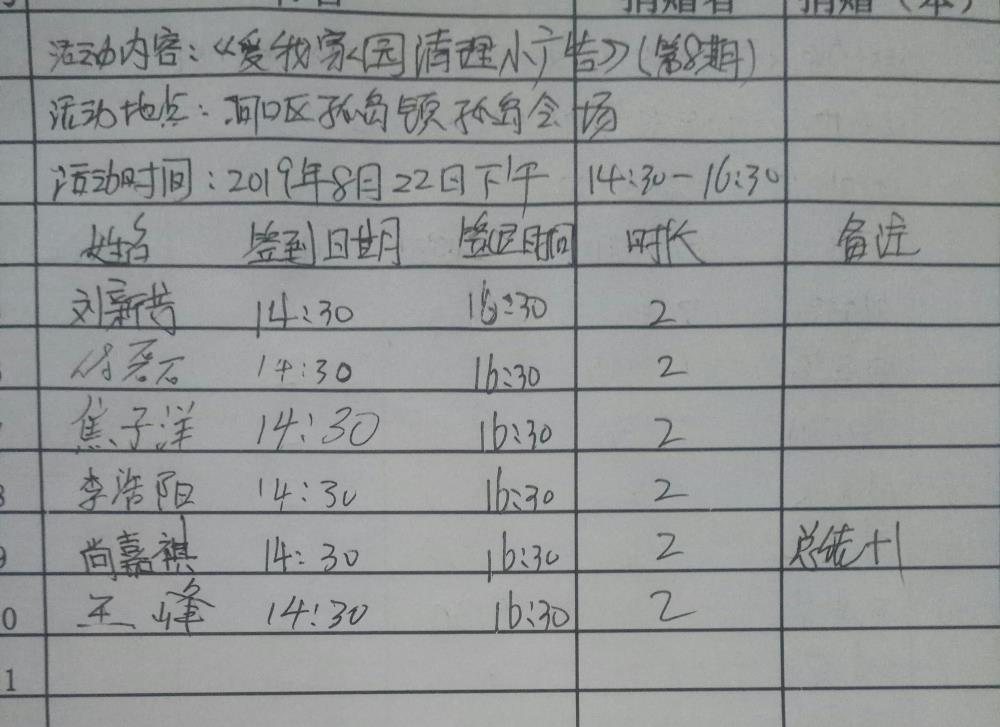 捐赠者 捐赠（本）
活动内容：《爱我家园清理小广告》（第8期）
活动地点：河口区孤岛镇孤岛会场
活动时间：2019年8月22日下午 14:30-16:30
姓名 签到时间 签退时间 时长 备注
刘新 14:30 16:30 2
14:30 16:30 2
焦子洋 14:30 16:30 2
8 李浩阳 14:30 16:30 2
9 尚嘉祺 14:30 16:30 2 总结+1
0 王峰 14:30 16:30 2
1